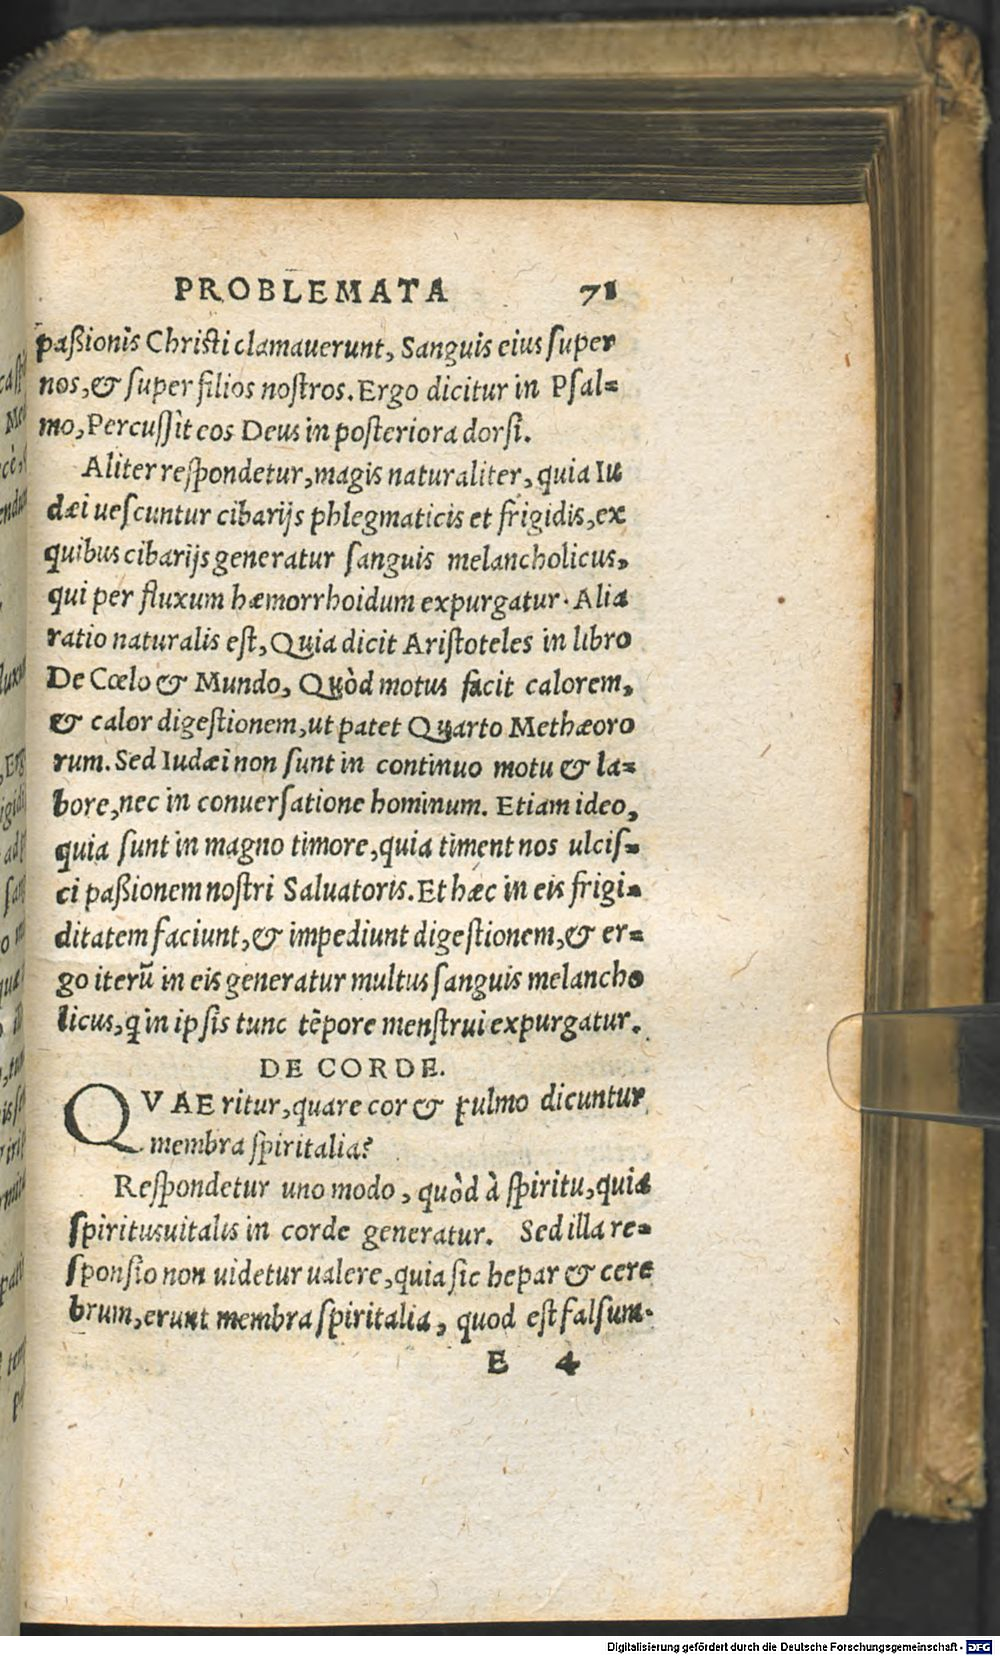 PROBLEMATA 71
paßionis Christi clamauerunt, Sanguis eius super
nos, & super filios nostros. Ergo dicitur in Psal=
mo, Percussit eos Deus in posteriora dorsi.
Aliter respondetur, magis naturaliter, quia Iu
dæi uescuntur cibarijs phlegmaticis et frigidis, ex
quibus cibarijs generatur sanguis melancholicus,
qui per fluxum hæmorrhoidum expurgatur. Alia
ratio naturalis est, Quia dicit Aristoteles in libro
De Cœlo & Mundo, Quòd motus facit calorem,
& calor digestionem, ut patet Quarto Methæoro
rum. Sed Iudæi non sunt in continuo motu & la=
bore, nec in conuersatione hominum. Etiam ideo,
quia sunt in magno timore, quia timent nos ulcis=
ci paßionem nostri Saluatoris. Et hæc in eis frigi=
ditatem faciunt, & impediunt digestionem, & er=
go iterũ in eis generatur multus sanguis melancho
licus, q̃ in ipsis tunc tẽpore menstrui expurgatur.
DE CORDE.
QVAEritur, quare cor & pulmo dicuntur
membra spiritalia?
Respondetur uno modo, quòd à spiritu, quia
spiritus uitalis in corde generatur. Sed illa re=
sponsio non uidetur ualere, quia sic hepar & cere
brum, erunt membra spiritalia, quod est falsum.
E 4
Digitalisierung gefördert durch die Deutsche Forschungsgemeinschaft - DFG